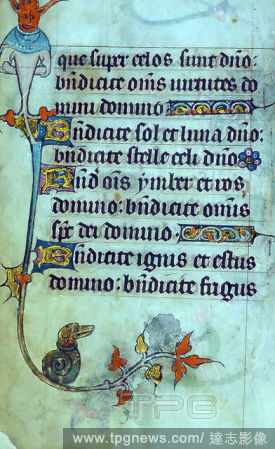 que super celos sunt dño:
bñdicite om̃s uirtutes do
mini domino
Bñdicite sol et luna dño:
bñdicite stelle celi dño
Bñd om̃s ymber et ros
domino: bñdicite om̃is
sp̃c dei domino
Bñdicite ignis et estus
domino: bñdicite frigus
TPG
www.tpgnews.com/達志影像